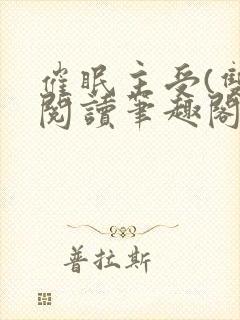 催眠主受(雙
閱讀筆趣閣
普拉斯